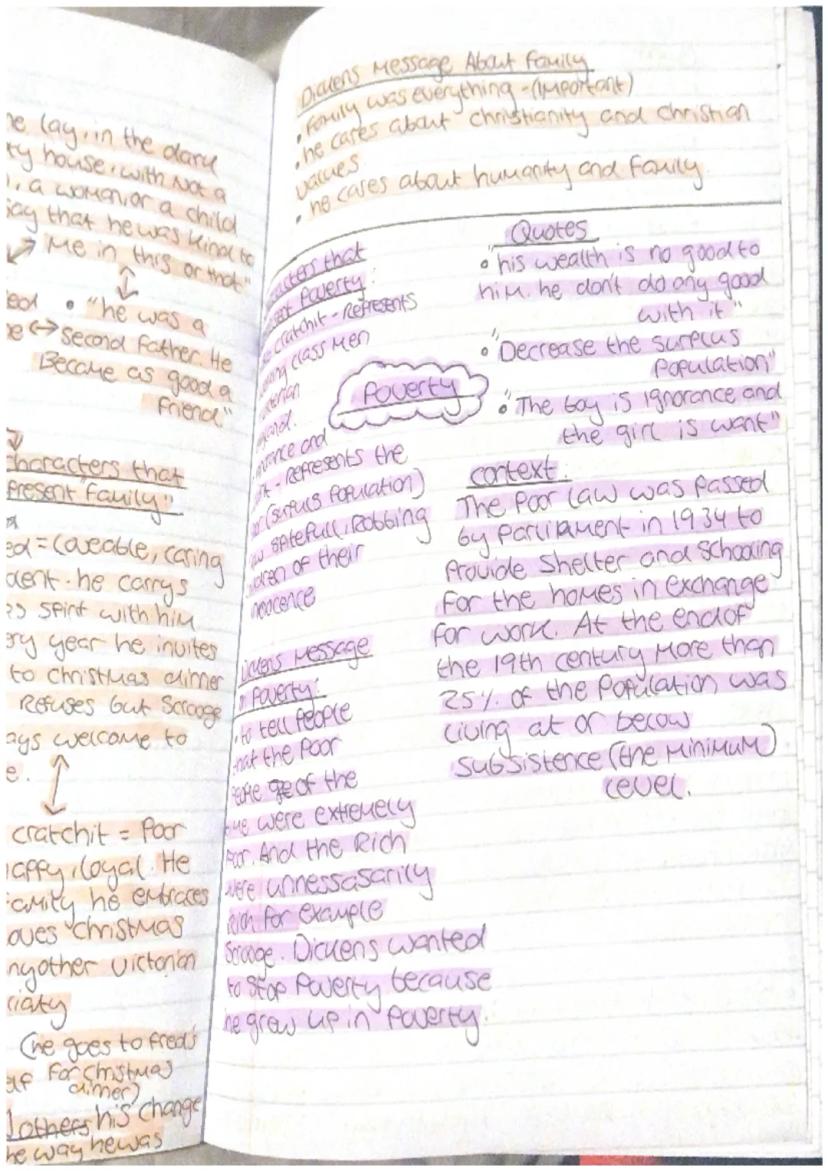 e lay, in the dark
ty house, with not a
, a woman, or a child
say that he was kind to
me in this or that"
ed • "he was a
e ↔ second father. He
Became as good a
friend"
characters that
present "family"
ed = loveable, caring
dent. he carrys
as spirit with him
ery year he invites
to christmas dinner
Refuses but Scrooge
ays welcome to
e.
cratchit = Poor
happy, loyal. He
family he embraces
oves christmas
nyother victorian
ciaty
(he goes to fred's
elf for christmas
dinner)
others his change
he way he was
Dickens Message About family
• family was everything - (important)
• he cares about christianity and christian
values
• he cares about humanity and family.
racters that
sent Poverty:
Cratchit - Represents
king class men
torian
gland.
norance and
nt - Represents the
or (surplus population)
ow spitefull, Robbing
ildren of their
nnocence
Dickens Message
n Poverty:
• to tell people
that the poor
people of the
time were extremely
poor. And the Rich
were unnessasarily
Rich for example
Scrooge. Dickens wanted
to stop Poverty because
he grew up in Poverty.
Poverty
Quotes
• "his wealth is no good to
him. he don't do any good
with it"
• "Decrease the surplus
Population"
• "The boy is ignorance and
the girl is want"
context:
The Poor law was passed
by parliament in 1934 to
Provide Shelter and Schooling
for the homes in exchange
for work. At the end of
the 19th century more than
25% of the population was
living at or below
subsistence (the minimum)
level.